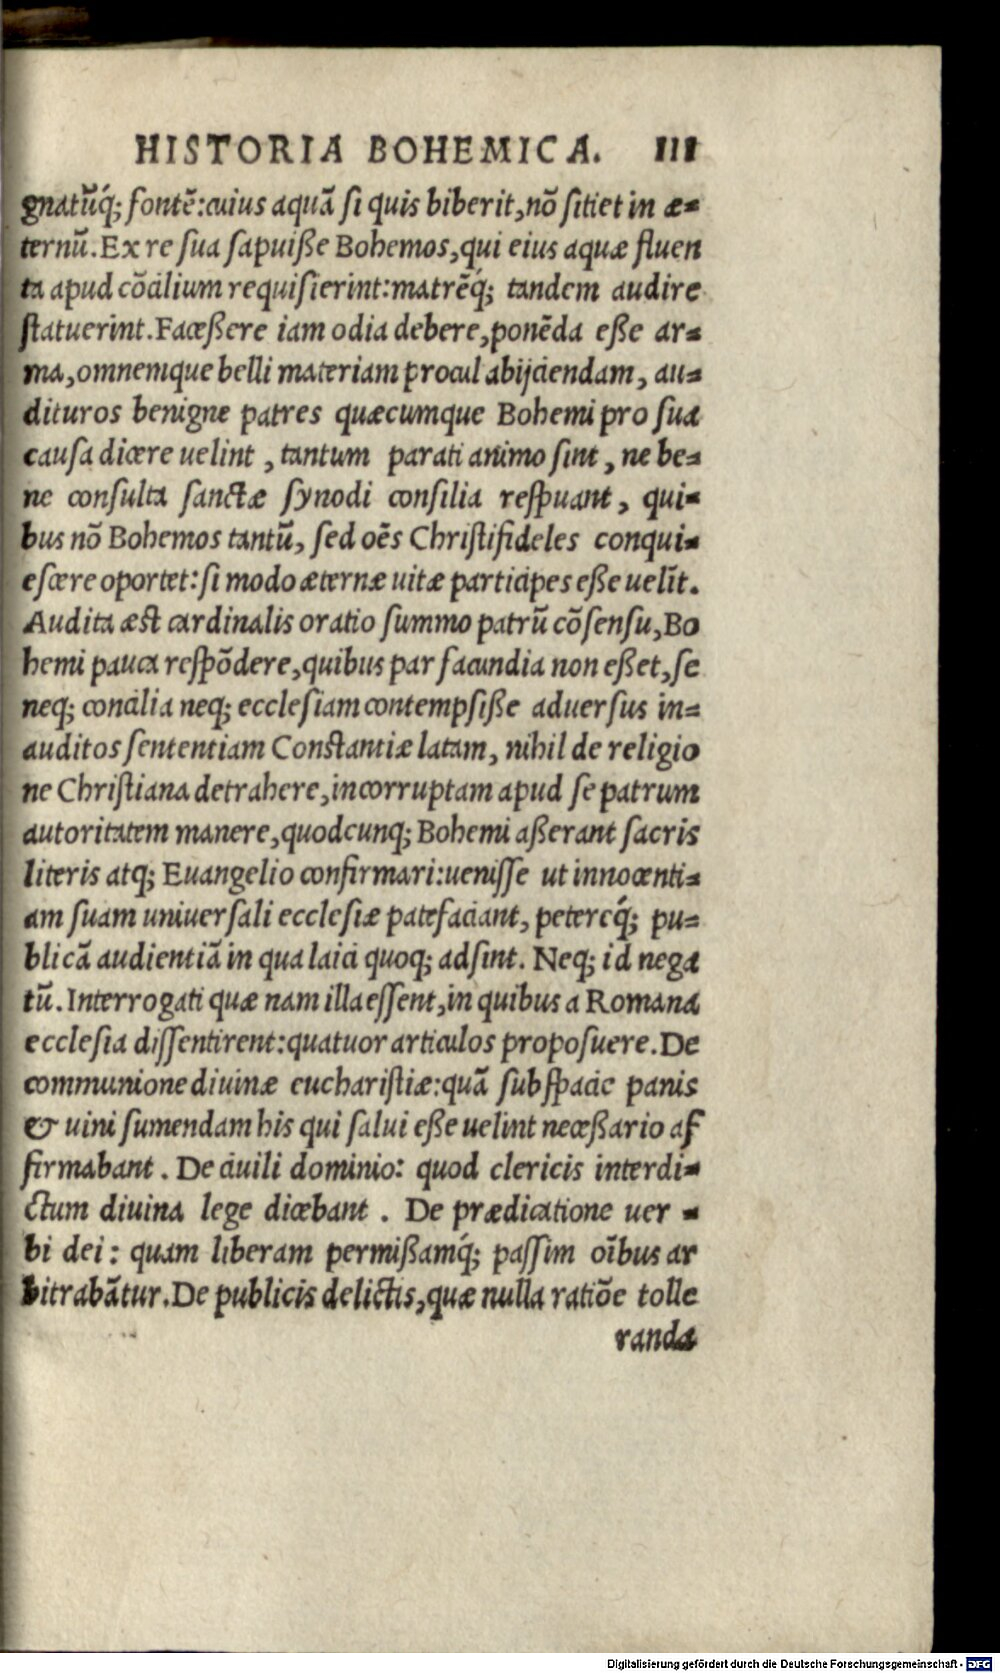 HISTORIA BOHEMICA. III
gnatũq́; fontẽ: cuius aquã si quis biberit, nõ sitiet in æ=
ternũ. Ex re sua sapuiße Bohemos, qui eius aquæ fluen
ta apud cõcilium requisierint: matrẽq́; tandem audire
statuerint. Faceßere iam odia debere, ponẽda eße ar=
ma, omnemque belli materiam procul abijciendam, au=
dituros benigne patres quæcumque Bohemi pro sua
causa dicere uelint, tantum parati animo sint, ne be=
ne consulta sanctæ synodi consilia respuant, qui=
bus nõ Bohemos tantũ, sed oẽs Christifideles conqui=
escere oportet: si modo æternæ uitæ participes eße uelĩt.
Audita æst cardinalis oratio summo patrũ cõsensu, Bo
hemi pauca respõdere, quibus par facundia non eßet, se
neq; concilia neq; ecclesiam contempsiße aduersus in=
auditos sententiam Constantiæ latam, nihil de religio
ne Christiana detrahere, incorruptam apud se patrum
autoritatem manere, quodcunq; Bohemi aßerant sacris
literis atq; Euangelio confirmari: uenisse ut innocenti=
am suam uniuersali ecclesiæ patefaciant, petereq́; pu=
blicã audientiã in qua laici quoq; adsint. Neq; id nega
tũ. Interrogati quæ nam illa essent, in quibus a Romana
ecclesia dissentirent: quatuor articulos proposuere. De
communione diuinæ eucharistiæ: quã sub spacie panis
& uini sumendam his qui salui eße uelint neceßario af
firmabant. De ciuili dominio: quod clericis interdi=
ctum diuina lege dicebant. De prædicatione uer =
bi dei: quam liberam permißamq́; passim oĩbus ar
bitrabãtur. De publicis delictis, quæ nulla ratiõe tolle
randa
Digitalisierung gefördert durch die Deutsche Forschungsgemeinschaft - DFG